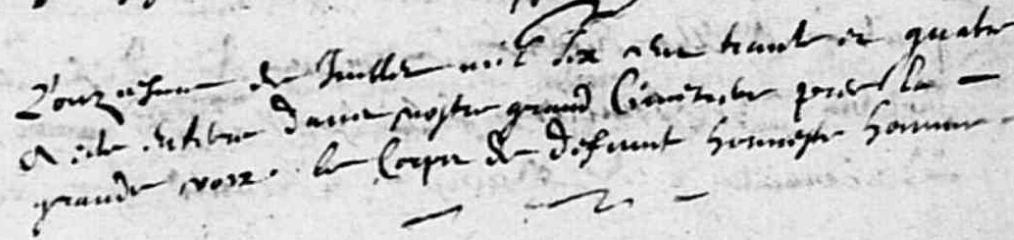 L'onziesme de Juillet mil six cens trante et quatre
A esté enterre dans nostre grand Cimetiere pres la
grande croix. le Corps de defunct honneste homme